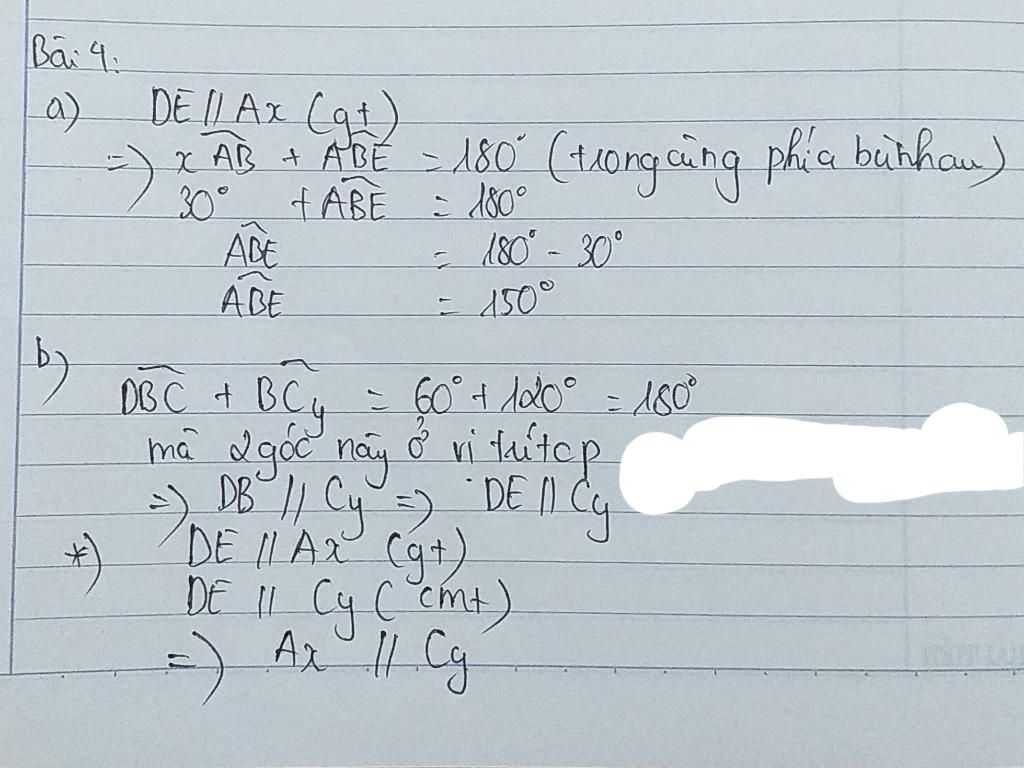 Bài 4:
a) DE // Ax (gt)
=) xAB + ABE = 180° (trong cùng phía bù nhau)
30° + ABE = 180°
ABE = 180° - 30°
ABE = 150°
b)
DBC + BCy = 60° + 120° = 180°
mà 2 góc này ở vị trí tcp
=) DB // Cy =) DE // Cy
*) DE // Ax (gt)
DE // Cy (cmt)
=) Ax // Cy